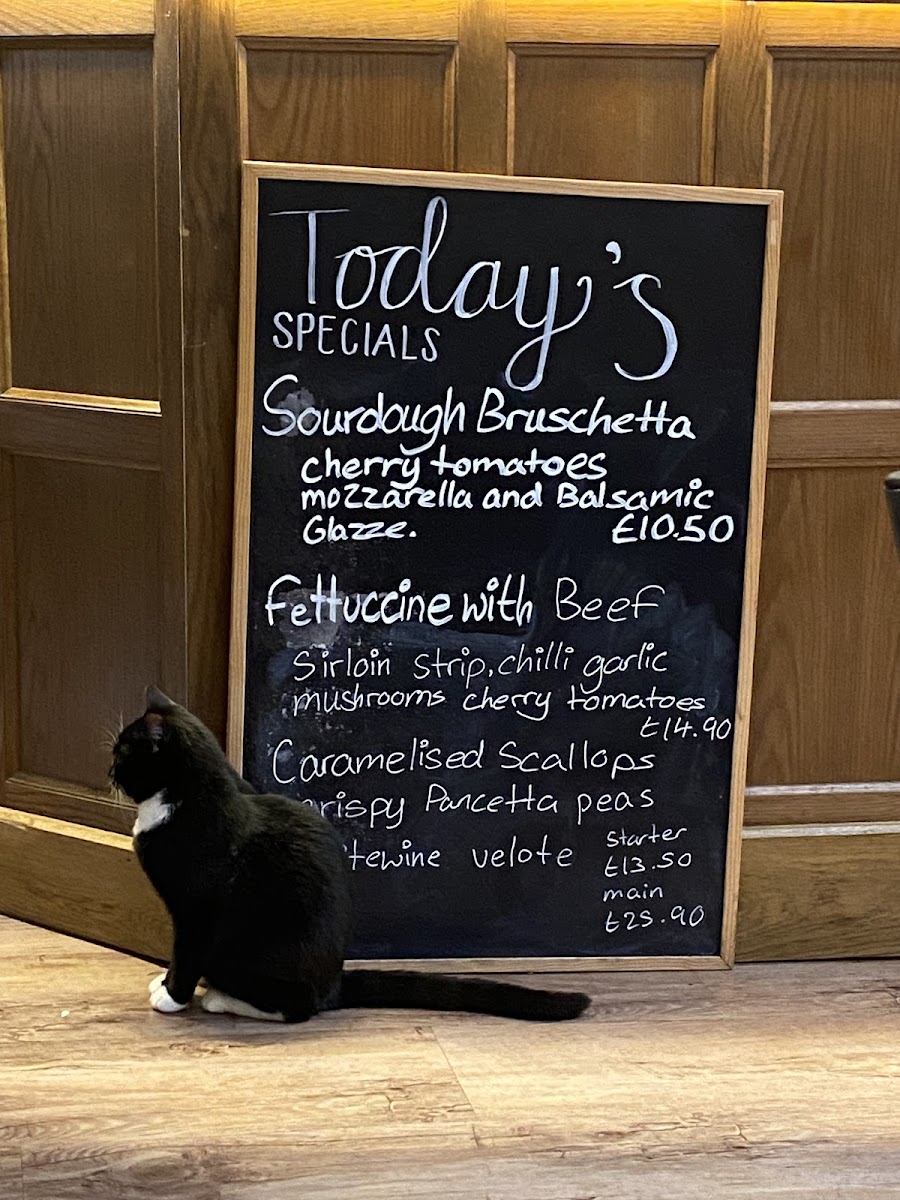 Today's
SPECIALS
Sourdough Bruschetta
cherry tomatoes
mozzarella and Balsamic
Glazze. £10.50
Fettuccine with Beef
Sirloin strip, chilli garlic
mushrooms cherry tomatoes
£14.90
Caramelised Scallops
crispy Pancetta peas
velote
Starter
£13.50
main
£25.90